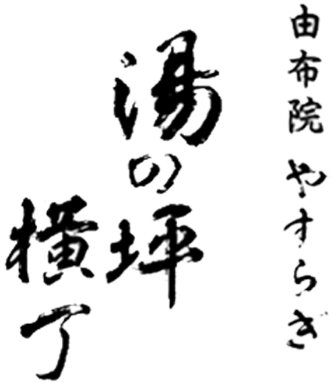 由布院やすらぎ
湯の坪
横丁